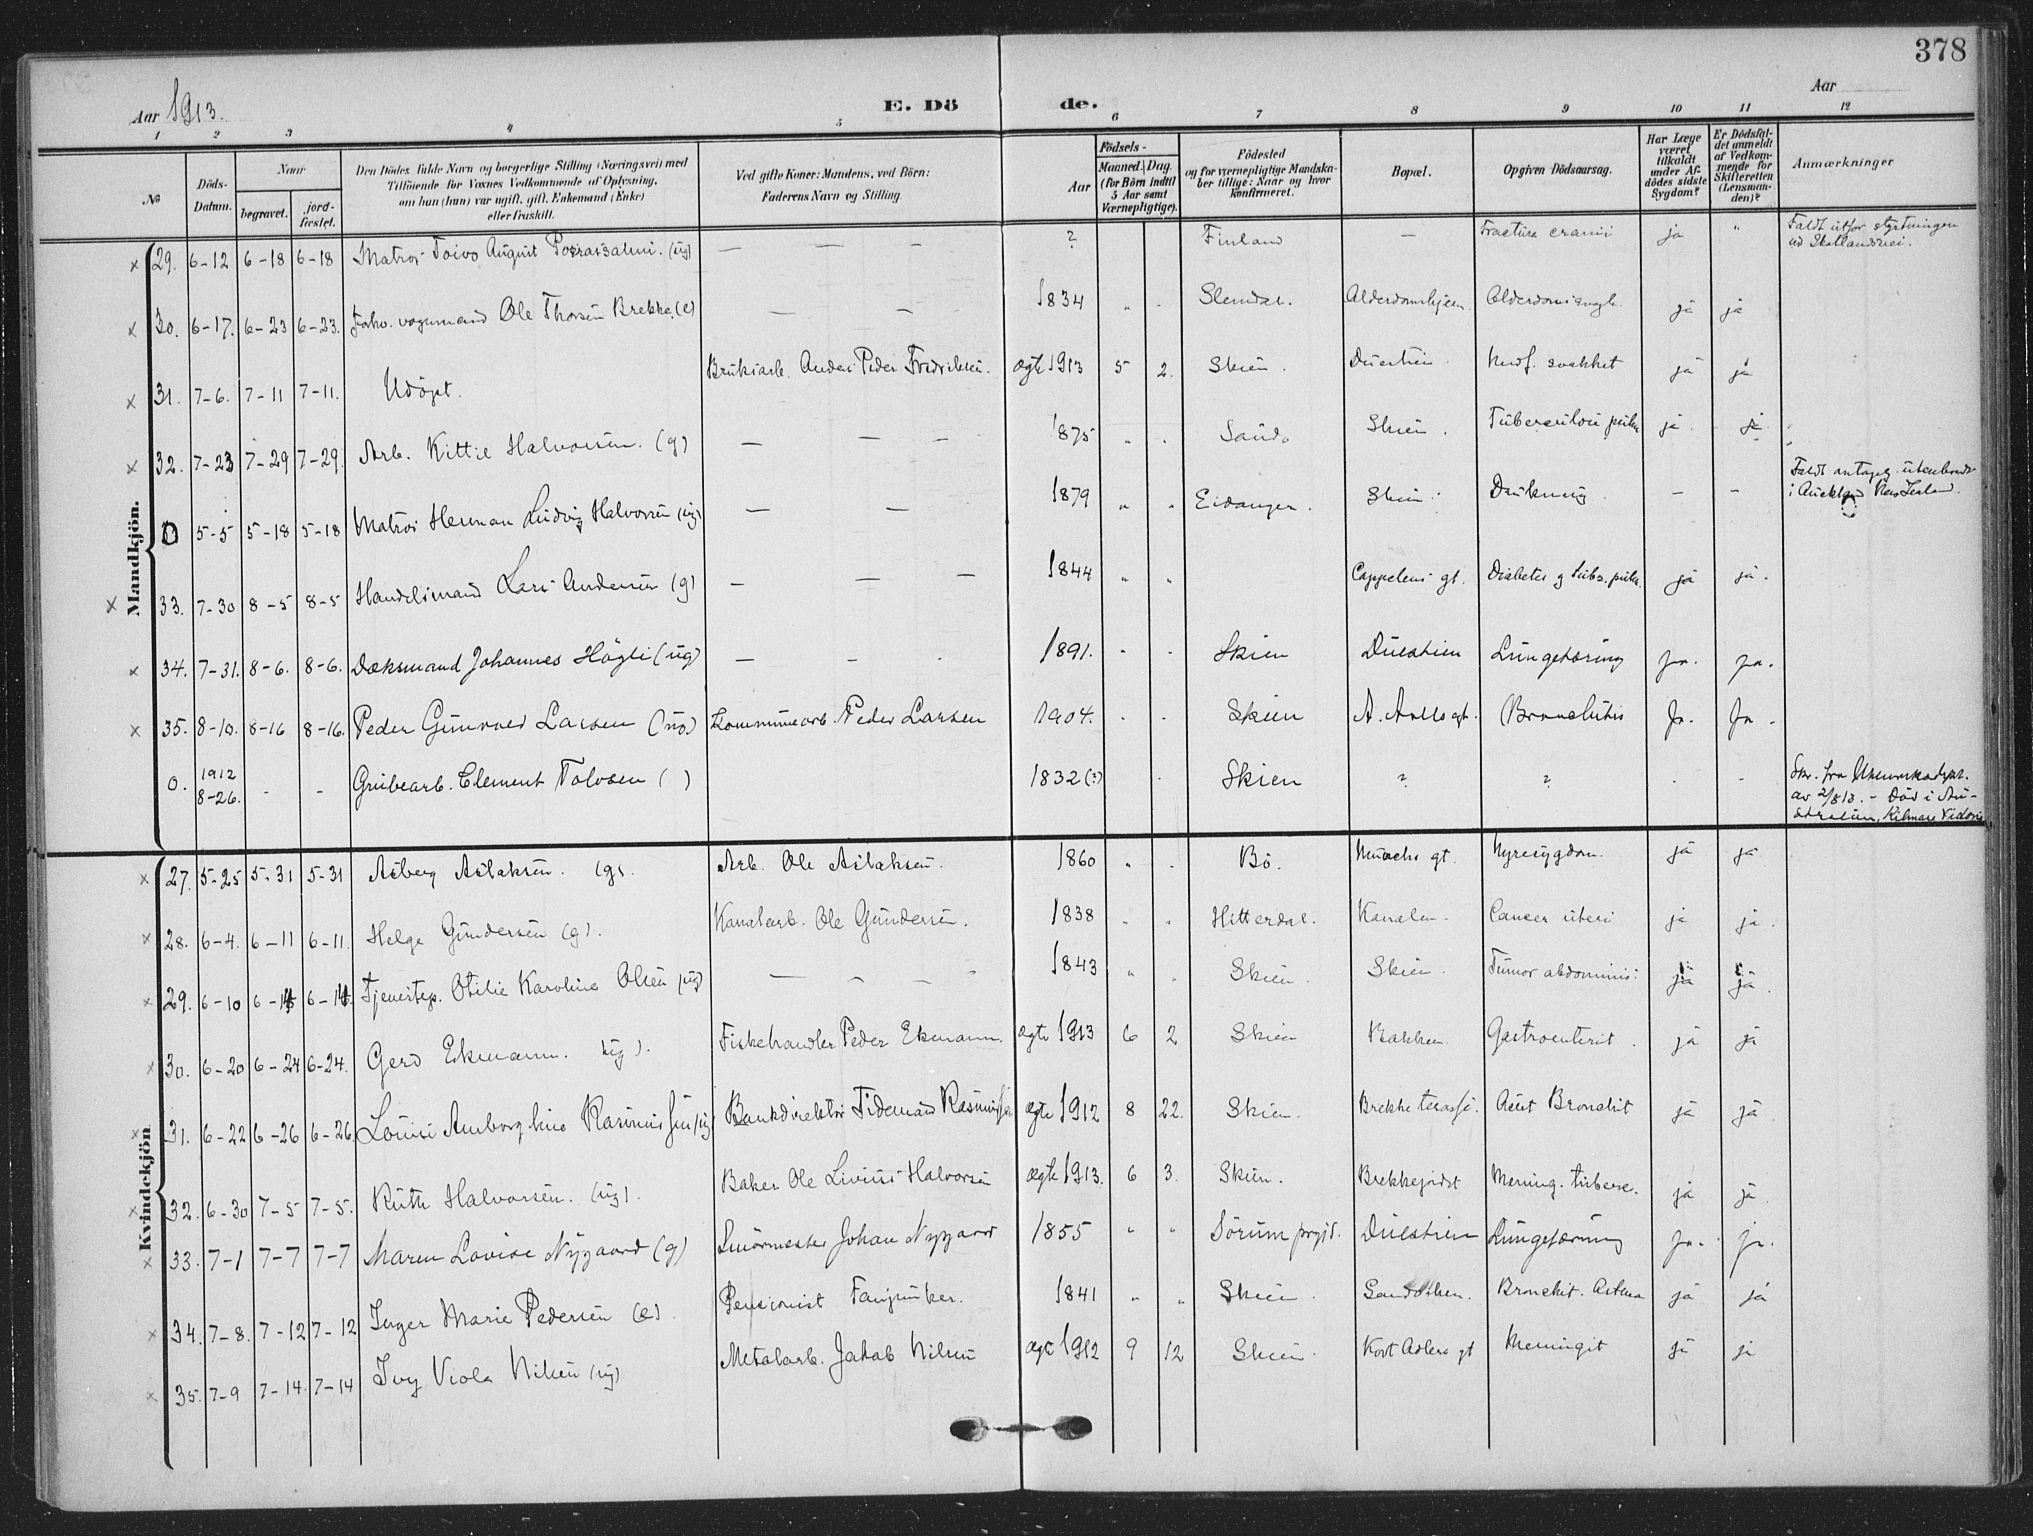 378
Aar 1913.
E. Dö de.
Aar
1 2 3 4 5 6 7 8 9 10 11 12
No
Döds-Datum.
Naar
begravet.
jord-fæstet.
Den Dödes fulde Navn og borgerlige Stilling (Næringsvei) med
Tilföiende for Voxnes Vedkommende af Oplysning,
om han (hun) var ugift, gift, Enkemand (Enke)
eller fraskilt.
Ved gifte Koner: Mandens, ved Börn:
Faderens Navn og Stilling.
Födsels-
Aar
Maaned. Dag.
(for Börn indtil
5 Aar samt
Værnepligtige).
Födested
og for værnepligtige Mandska-
ber tillige: Naar og hvor
konfirmeret.
Bopæl.
Opgiven Dödsaarsag.
Har Læge
været
tilkaldt
under Af-
dödes sidste
Sygdom?
Er Dödsfal-
det anmeldt
af Vedkom-
mende for
Skifteretten
(Lensman-
den)?
Anmærkninger
Mandkjön.
29. 6-12 6-18 6-18 Matros Toivo August (ug) — — — ? Finland — Fractura cranii ja " Faldt utfor styrtningen
ved Skotlandsvei.
30. 6-17. 6-23 6-23. Forhv. vognmand Ole Thorsen Brekke (e) — — 1834 " . Slemdal. Alderdomshjem. ja ja
31. 7-6. 7-11 7-11. Udöpt. Bruksarb. Anders Peder Fredriksen. ægte 1913 5 2. Skien. Duestien. Medf. svakhet ja ja
32. 7-23 7-29 7-29. Arb. Kittil Halvorsen. (g) — — — 1875 " . Saude Skien. Tuberculose pulm. ja ja
0 5-5 5-18 5-18 Matros Herman Ludvig Halvorsen (ug) — — 1879 " . Eidanger. Skien. Drukning — — Faldt antagelig utenbords
i Auckland New Zealand.
33. 7-30 8-5 8-5 Handelsmand Lars Andersen (g) — — — 1844 " " Cappelens gt. Diabetes og Tub. pulm. ja ja.
34. 7-31. 8-6. 8-6. Dæksmand Johannes Högli (ug) — — . 1891. " . Skien Duestien Lungetæring ja. ja.
35. 8-10. 8-16 8-16. Peder Gunvald Larsen (ug) Kommunearb. Peder Larsen 1904. . . Skien A. Aalls gt. Bronchitis Ja. Ja.
0. 1912
8-26. - - Grubearb. Clement Tolvsen ( ) 1832 (?) . Skien ? ? . . Skr. fra Utenriksdept.
av 2/8 13. - Död i Au-
stralien, Kilmore Victoria
Kvindekjön
27. 5-25 5-31 5-31 Asberg Aslaksen. (g). Arb. Ole Aslaksen. 1860 " . Bö. Munchs gt. Nyresygdom. ja ja
28. 6-4. 6-11 6-11. Helge Gundersen (g). Kanalarb. Ole Gundersen. 1838 " " Hitterdal. Kanalen. Cancer uteri ja ja.
29. 6-10 6-14 6-14. Tjenestep. Otilie Karoline Olsen (ug) — — - 1843 " . Skien. Skien. Tumor abdominis. ja ja.
30. 6-20 6-24 6-24. Gerd Ekmann. (ug). Fiskehandler Peder Ekmann. ægte 1913 6 2 Skien Bakken Gastroenterit. ja ja
31. 6-22 6-26 6-26. Louise Rasmussen (ug) Bankdirektör Tidemand Rasmussen ægte 1912 8 22. Skien. Brekke terasse. Acut Bronchit ja ja
32. 6-30 7-5 7-5. Ruth Halvorsen. (ug). Baker Ole Livius Halvorsen ægte 1913. 6 3. Skien. Brekkejordet Mening. tuberc. ja ja.
33. 7-1 7-7 7-7 Maren Lovise Nygaard (g) Smörmester Johan Nygaard 1855 " " Sörum prgjd. Duestien Lungetæring ja. ja.
34. 7-8. 7-12 7-12 Inger Marie Pedersen (e). Pensionist Fanjunker. 1841 " " Skien. Bronchit. Astma ja ja
35. 7-9 7-14. 7-14 Ivy Viola Nilsen (ug) Metalarb. Jakob Nilsen ægte 1912 9 12 Skien. Kort Adlers gt Meningit ja ja